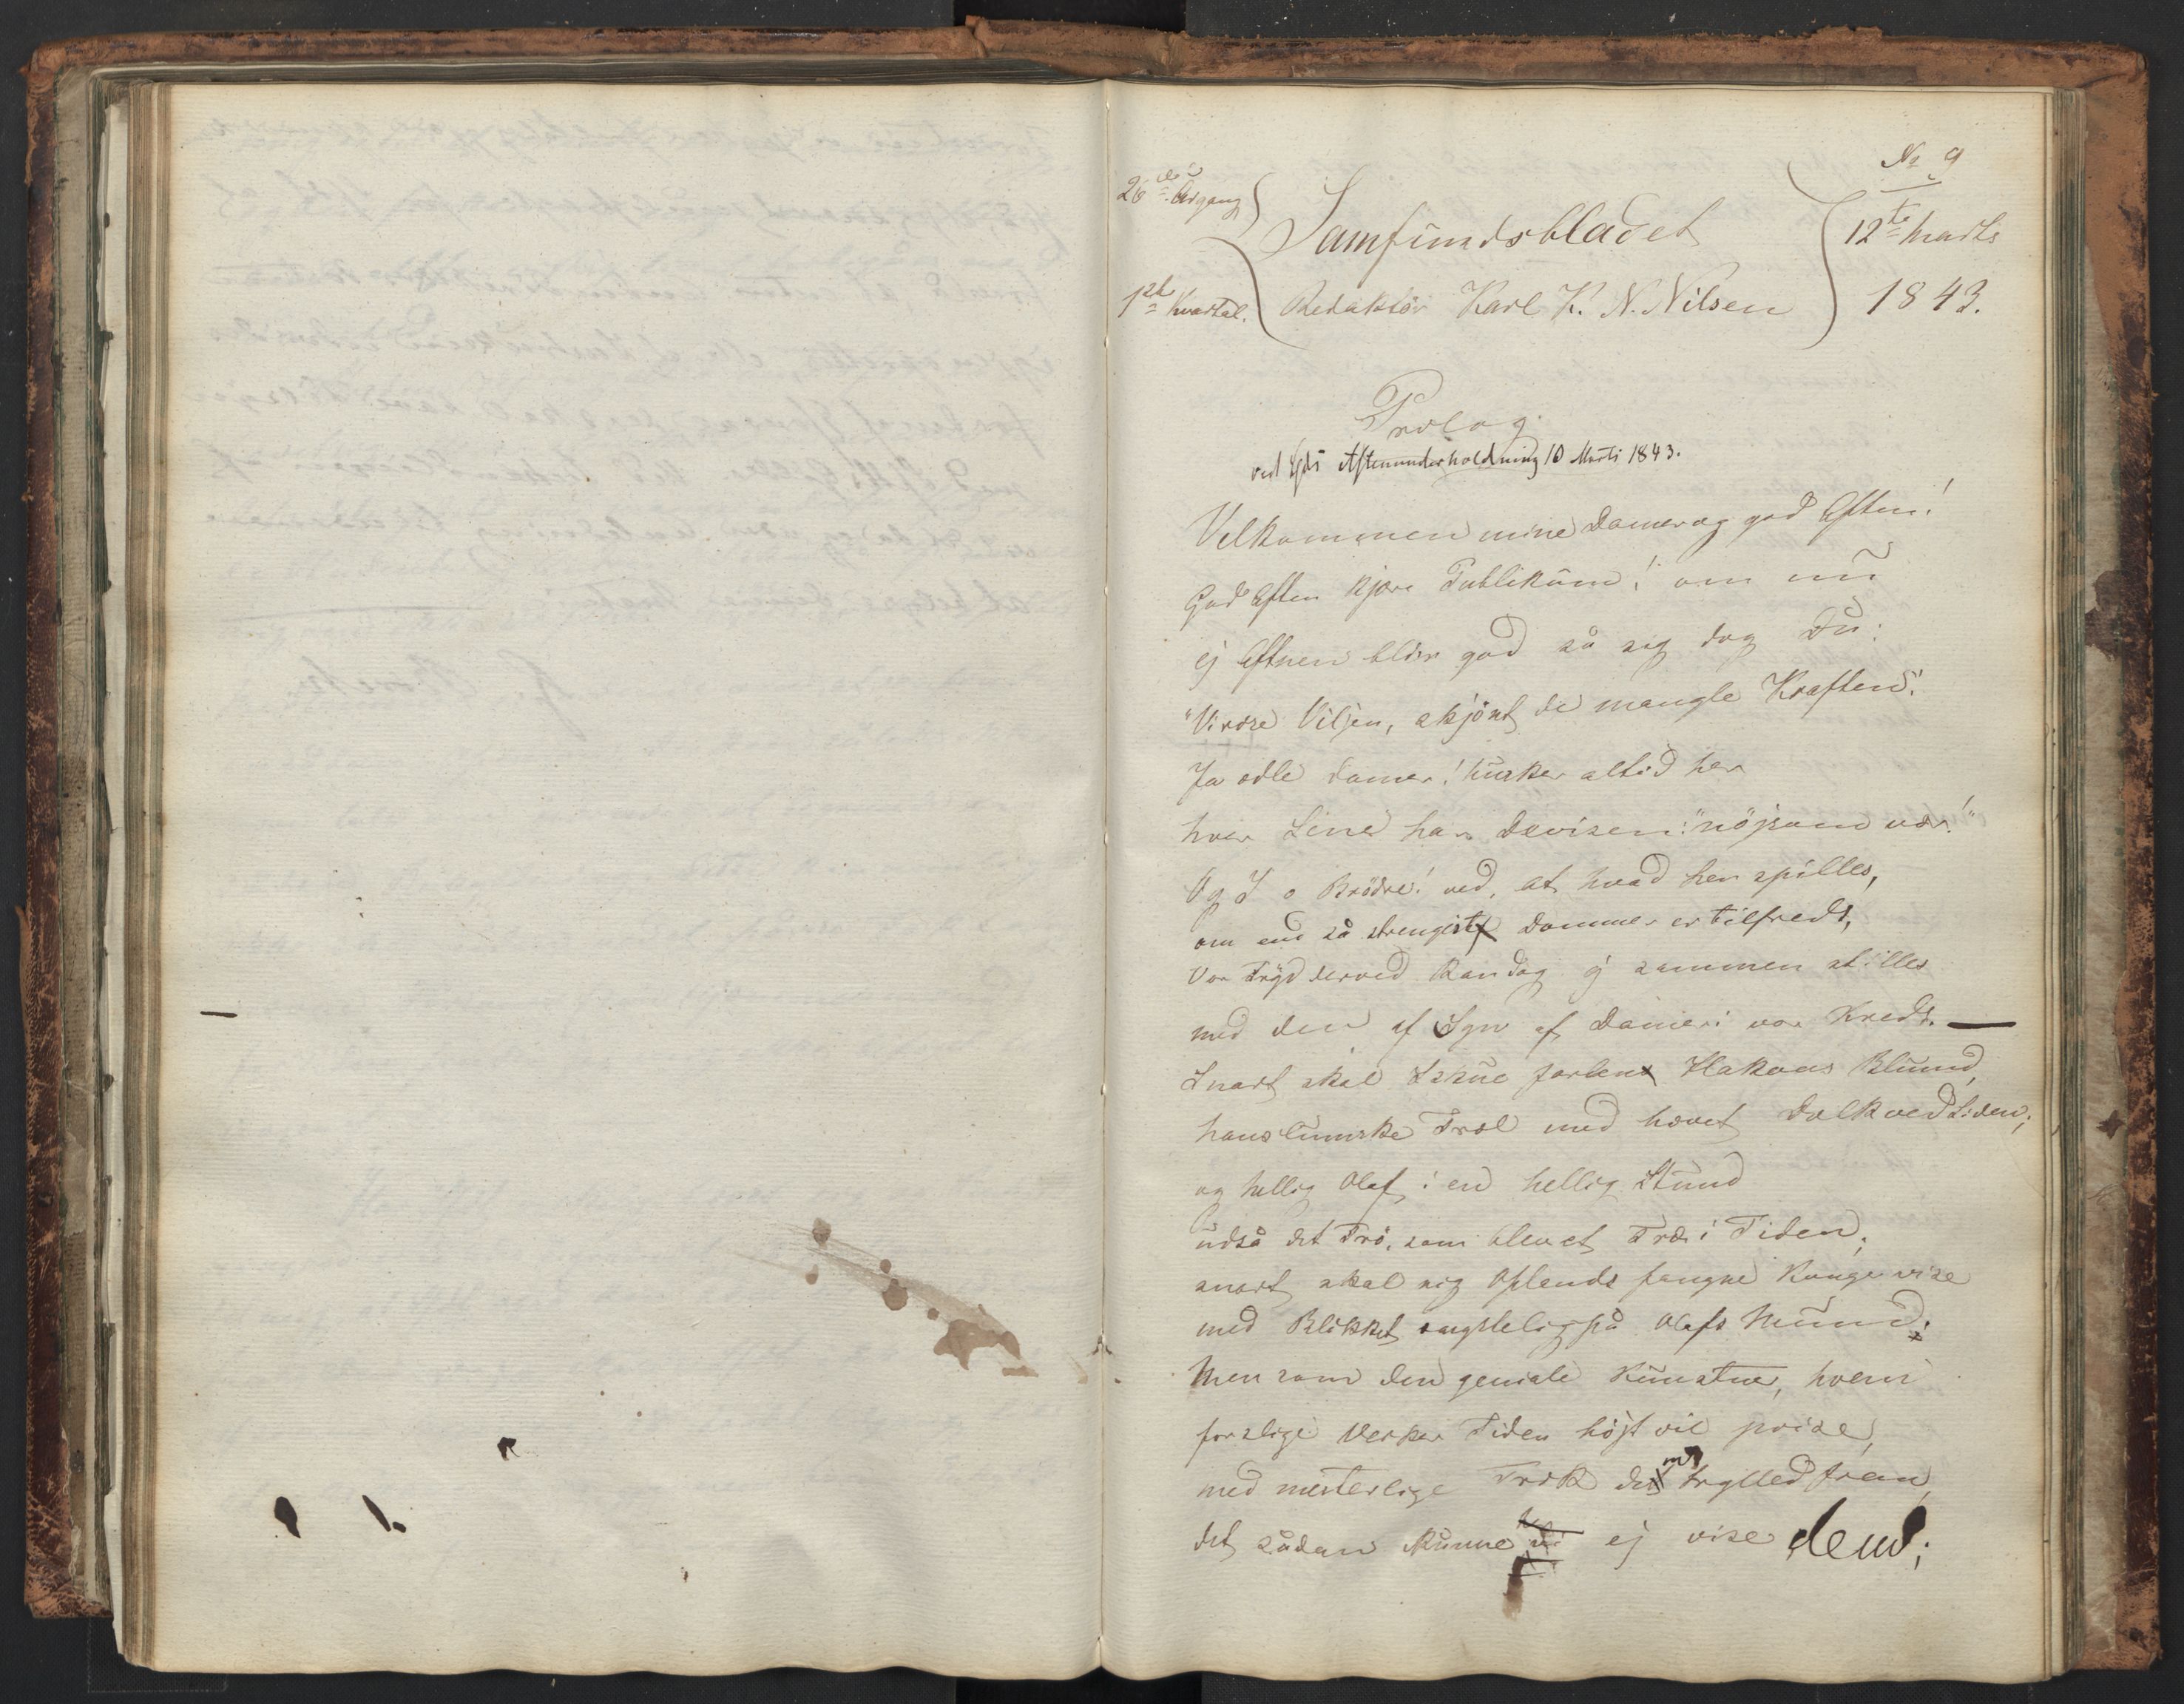 No 9
26de Årgang
Samfundsbladet
12te Marts
1ste Kvartal.
Redaktör Karl K. N. Nilsen
1843.
Prolog
ved Aftenunderholdning 10 Marts 1843.
Velkommen mine Damer og god Aften!
God Aften kjære Publikum! om nu
ej Aftnen blir god så sig dog Du:
"Vi rose Viljen, skjönt de mangle Kraften".
Ja ædle Damer! husker altid her
hver Scene har Devisen: "nöjsom vær!"
Og I o Brödre! ved, at hvad her spilles,
om end så strengest Dommer er tilfreds,
Vor Fryd derved kan dog ej sammen stilles
med den af Syn af Damer i vor Kreds. —
Snart skal I skue Jarlen Hakons Blund,
hans lumske Træl med hævet Dolk ved Siden;
og hellig Olaf i en hellig Stund
udså det Frö, som blev et Træ i Tiden;
snart skal sig Oplands fangne Konge vise
med Blikket ængstelig på Olafs Mund;
Men som den geniale Kunstner, hvem
for slige Verker Tiden höjt vil prise,
med mesterlige Træk dem trylled frem,
det sådan kunne ej vise dem;